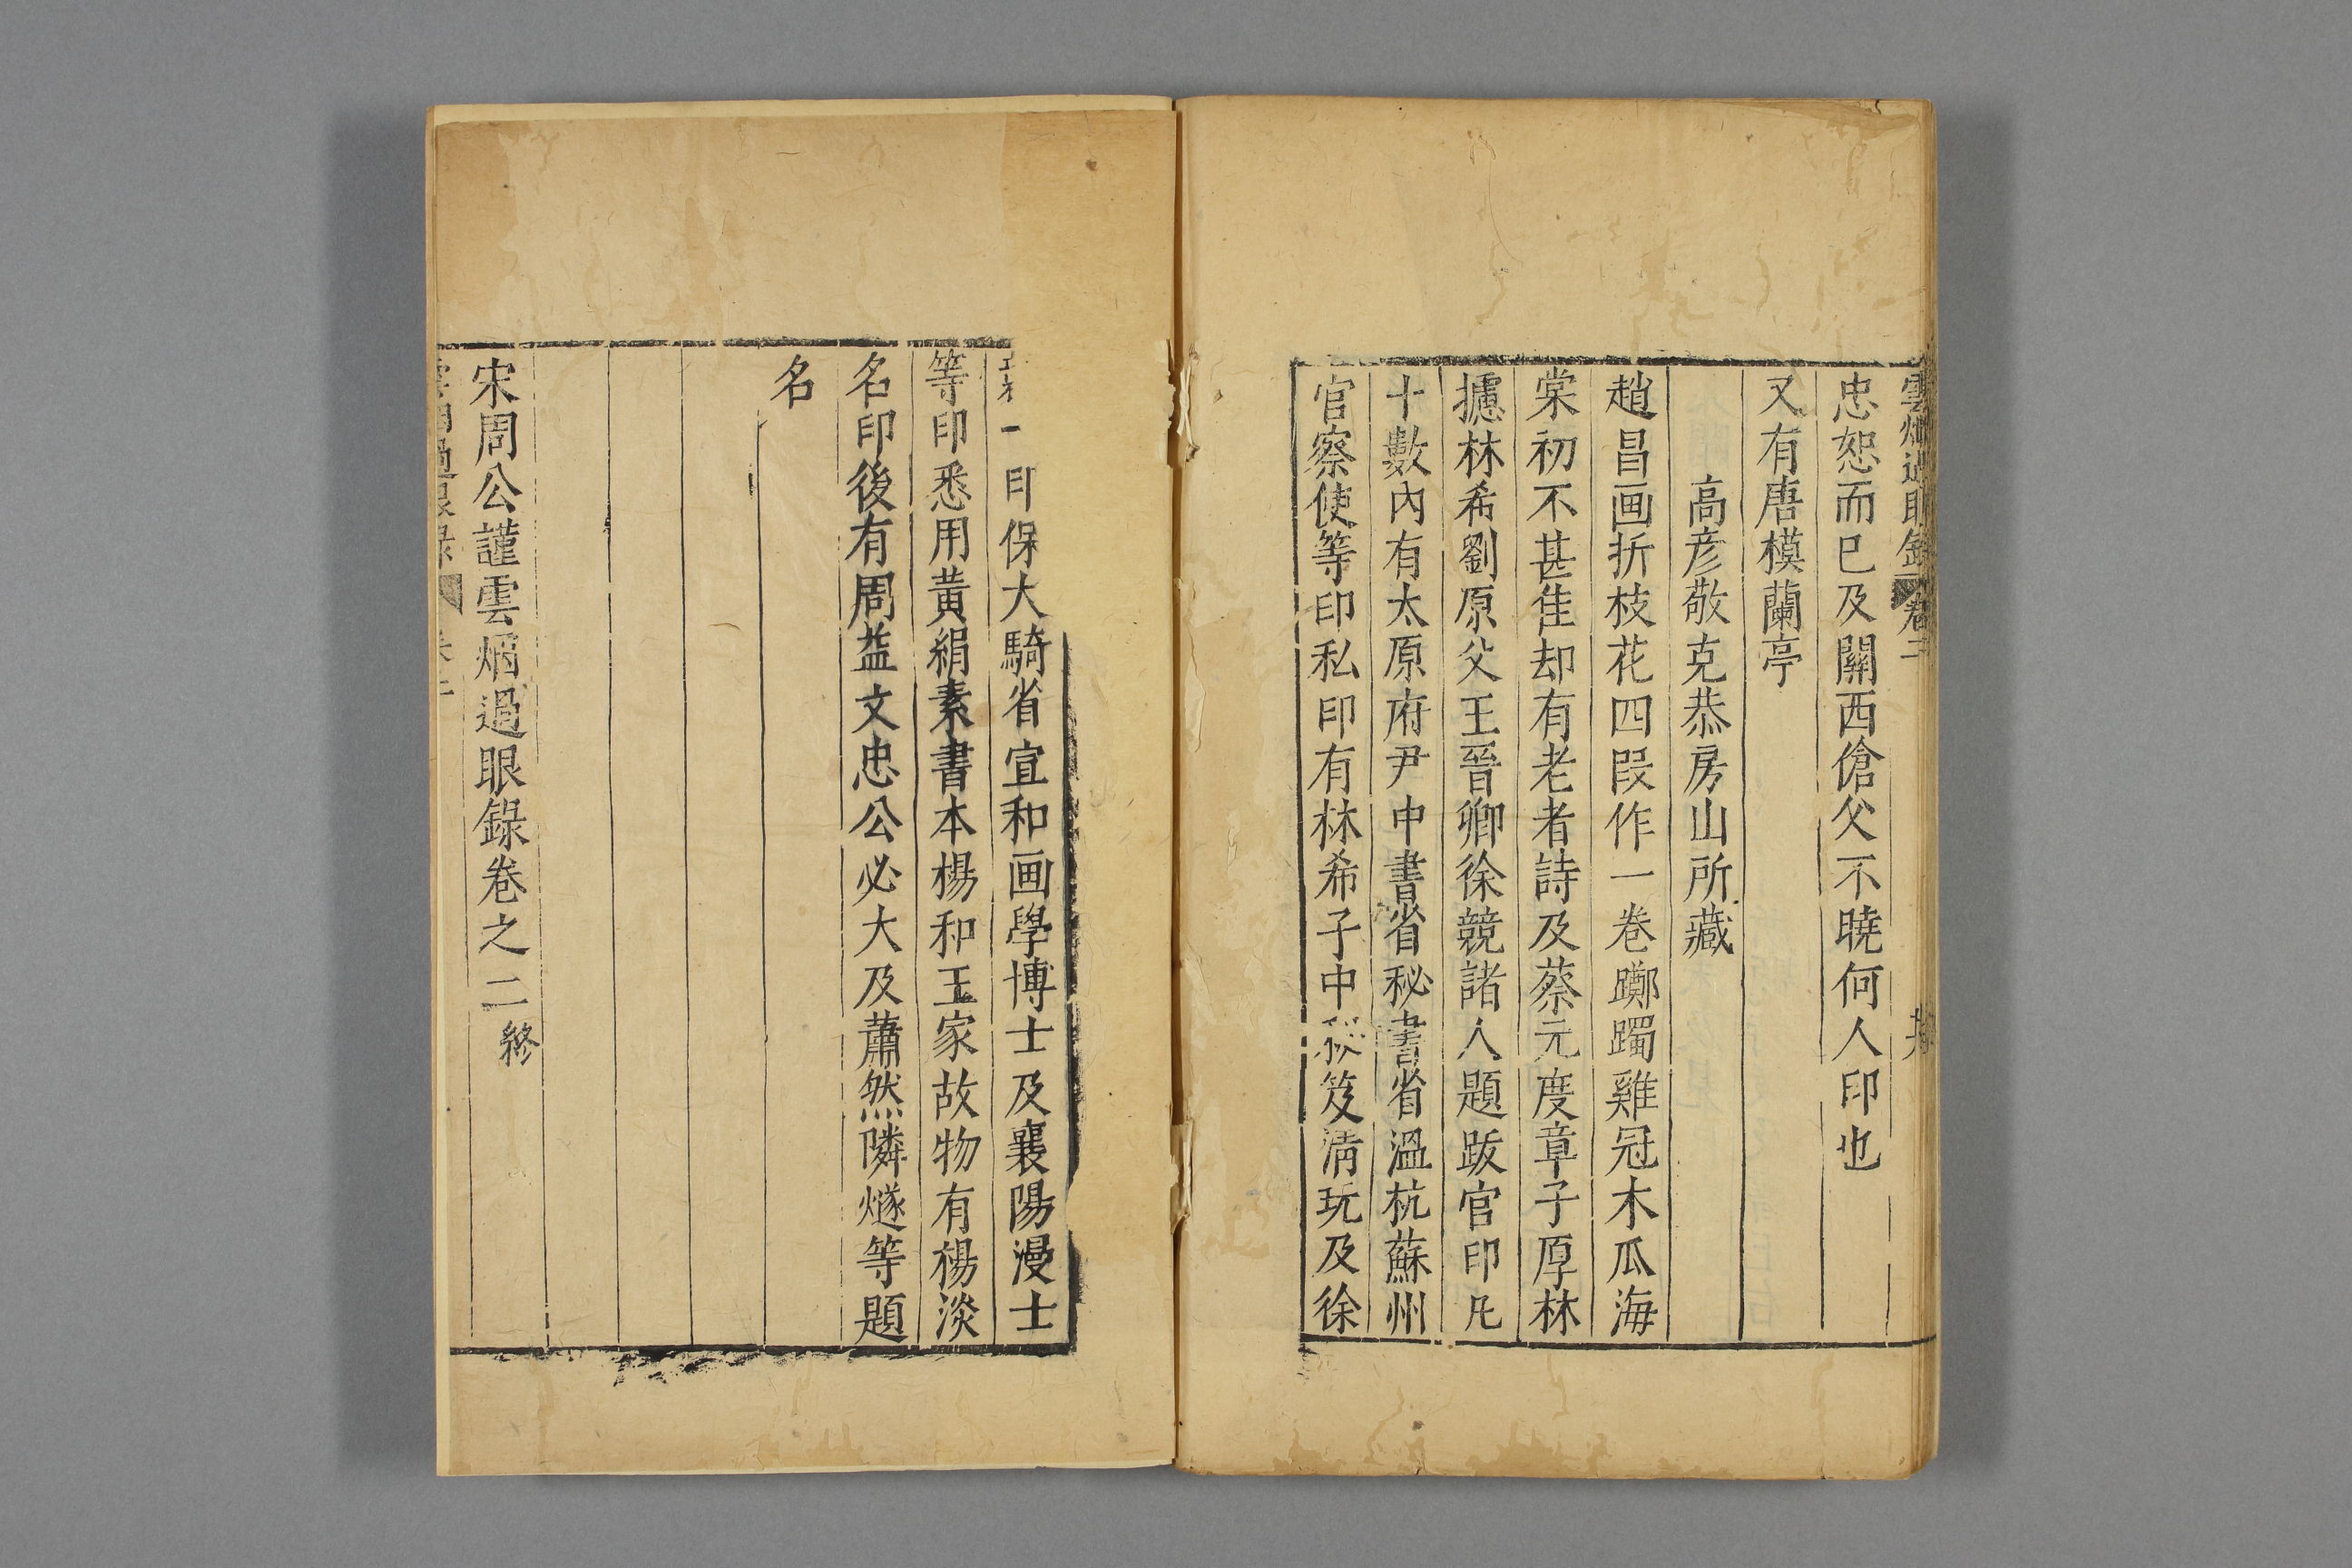 雲烟過眼錄 卷二
忠恕而已及關西傖父不曉何人印也
又有唐模蘭亭
高彦敬克恭房山所藏
趙昌画折枝花四段作一巻躑躅雞冠木瓜海
棠初不甚佳却有老者詩及蔡元度章子厚林
攄林希劉原父王晉卿徐競諸人題跋官印凡
十數內有太原府尹中書省秘書省溫杭蘇州
官察使等印私印有林希子中秘笈清玩及徐
一印保大騎省宣和画學博士及襄陽漫士
等印悉用黃絹素書本楊和王家故物有楊淡
名印後有周益文忠公必大及蕭然隣燧等題
名
宋周公謹雲烟過眼錄巻之二終